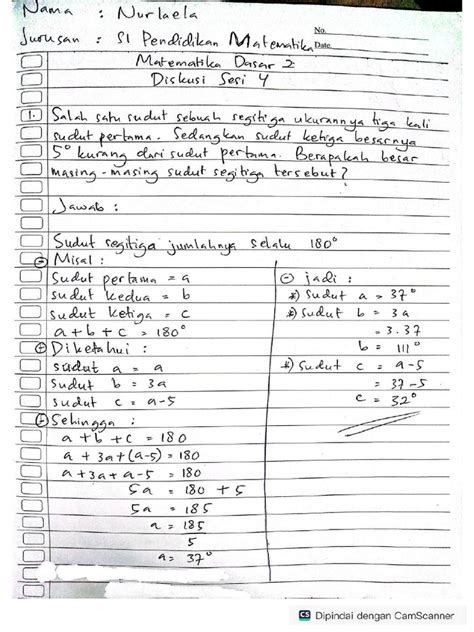 Nama : Nurlaela
Jurusan : S1 Pendidikan Matematika
No.
Date
Matematika Dasar 2
Diskusi Sesi 4
1. Salah satu sudut sebuah segitiga ukurannya tiga kali
sudut pertama. Sedangkan sudut ketiga besarnya
5° kurang dari sudut pertama. Berapakah besar
masing-masing sudut segitiga tersebut?
Jawab :
Sudut segitiga jumlahnya selalu 180°
Misal :
Sudut pertama = a
sudut kedua = b
sudut ketiga = c
a + b + c = 180°
Diketahui :
sudut a = a
sudut b = 3a
sudut c = a-5
Sehingga :
a + b + c = 180
a + 3a + (a-5) = 180
a + 3a + a - 5 = 180
5a = 180 + 5
5a = 185
a = 185
5
a = 37°
jadi :
*) sudut a = 37°
*) sudut b = 3a
= 3.37
b = 111°
*) sudut c = a-5
= 37-5
c = 32°
CS Dipindai dengan CamScanner